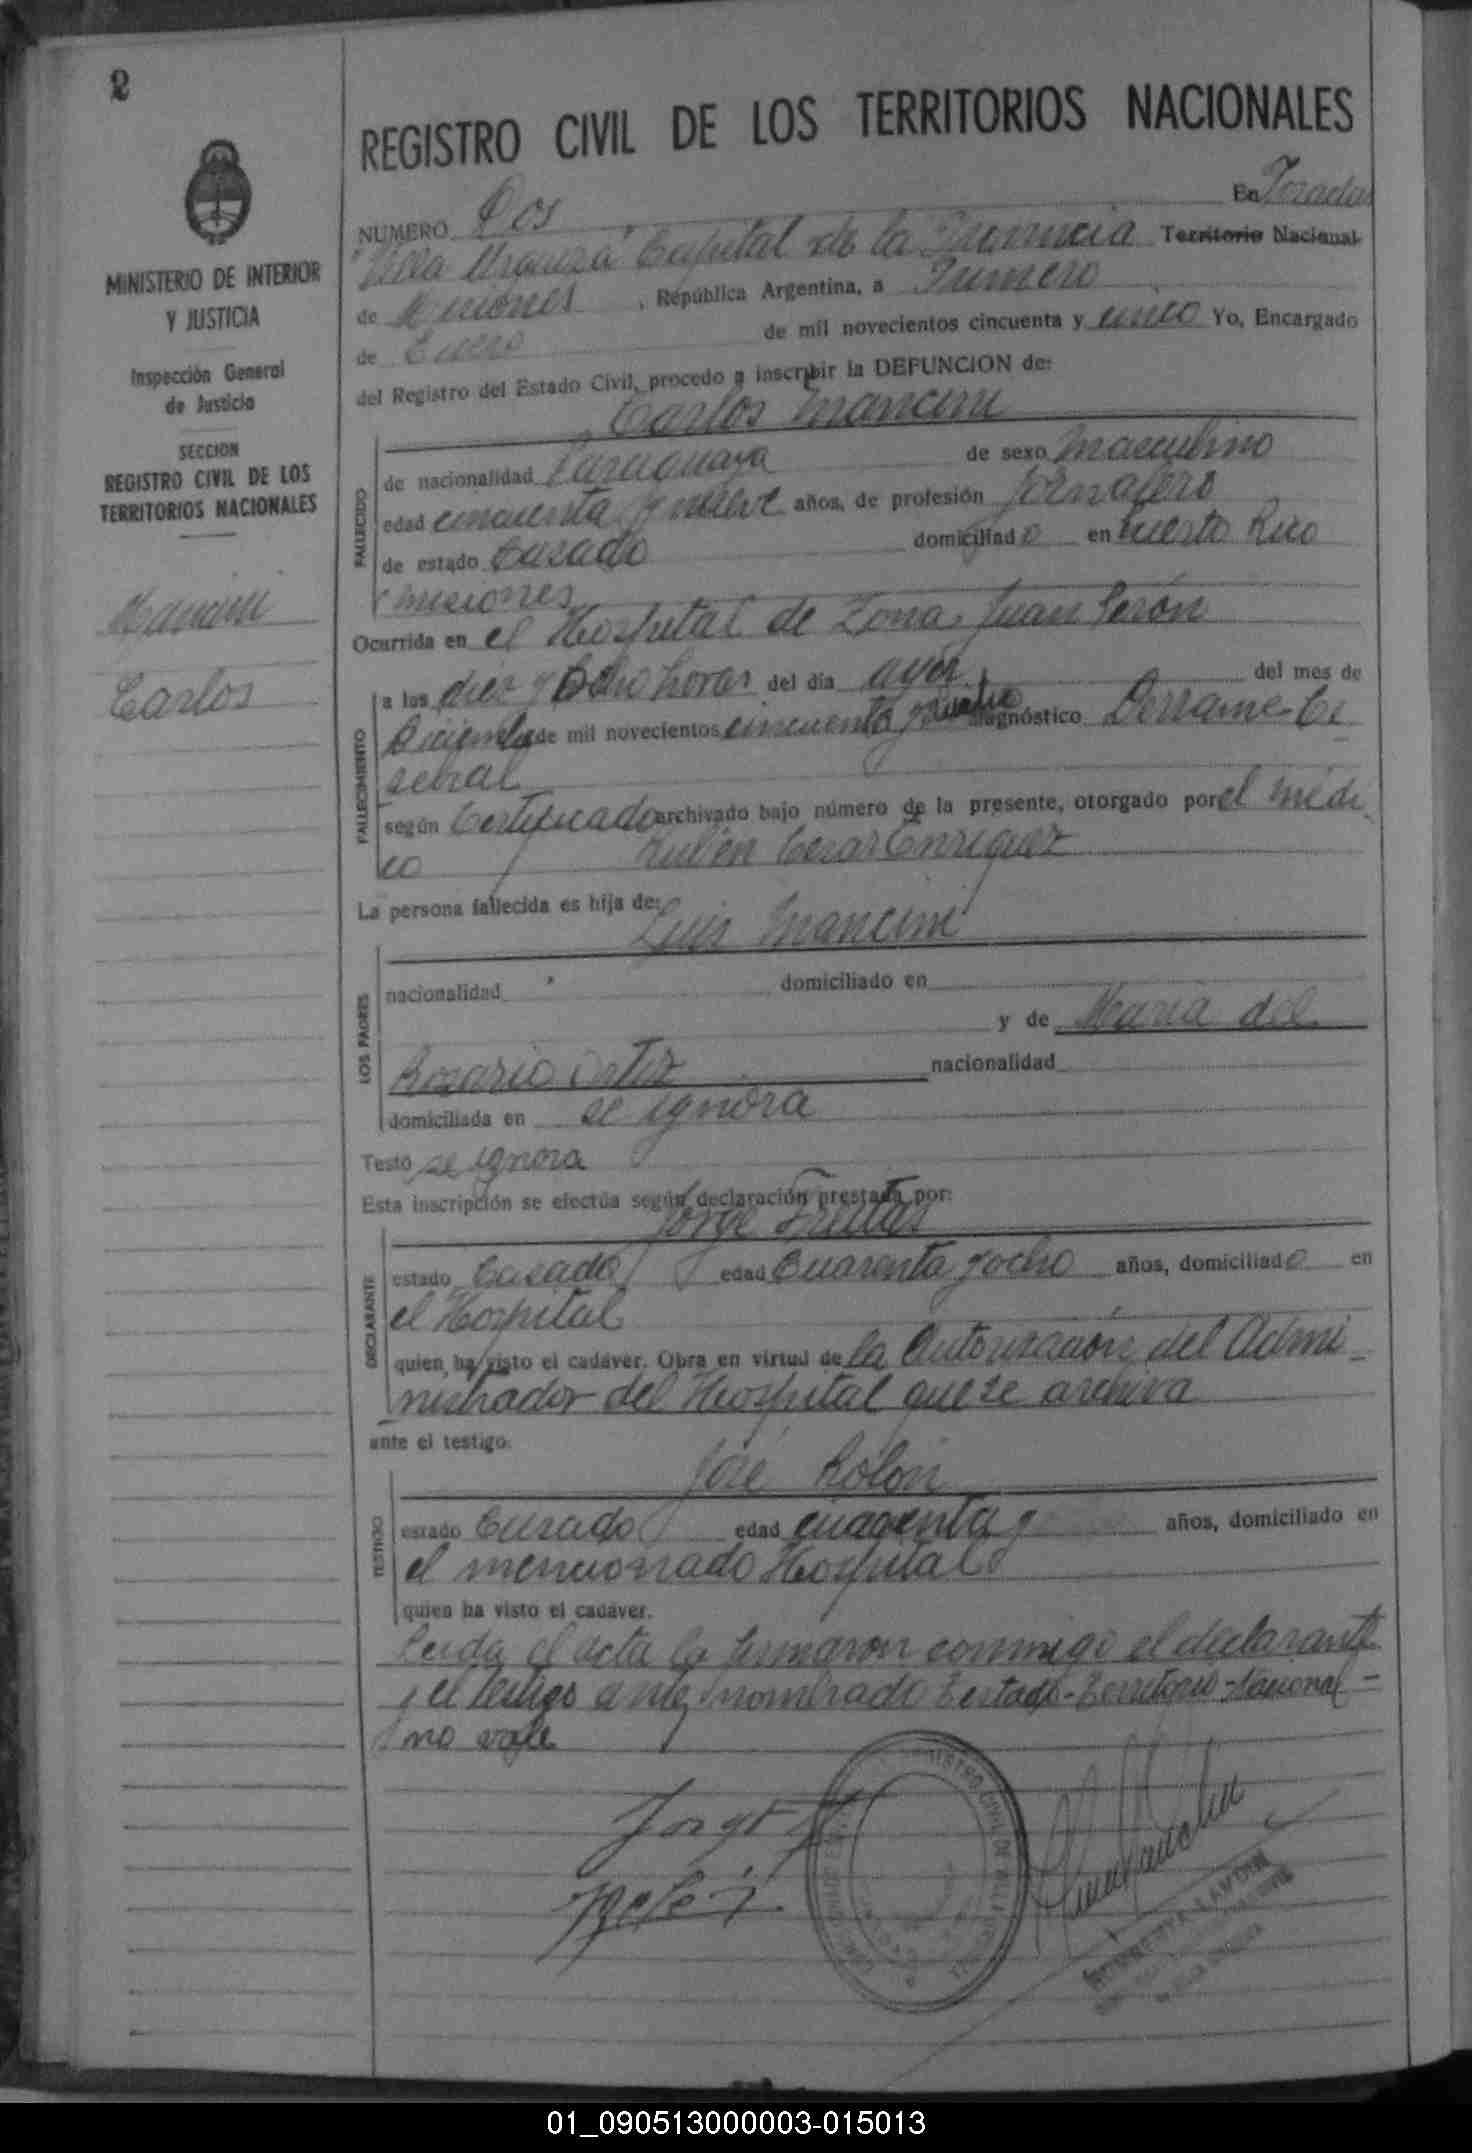 2
REGISTRO CIVIL DE LOS TERRITORIOS NACIONALES
MINISTERIO DE INTERIOR
Y JUSTICIA
Inspección General
de Justicia
SECCION
REGISTRO CIVIL DE LOS
TERRITORIOS NACIONALES
Mancini
Carlos
NUMERO Dos En Posadas
"Villa Urquiza" Capital de la Provincia Territorio Nacional
de Misiones, República Argentina, a Primero
de Enero de mil novecientos cincuenta y cinco Yo, Encargado
del Registro del Estado Civil, procedo a inscribir la DEFUNCION de:
Carlos Mancini
FALLECIDO
de nacionalidad Paraguaya de sexo Masculino
edad cincuenta y nueve años, de profesión Jornalero
de estado Casado domiciliado en Puerto Rico
Misiones
Ocurrida en el Hospital de Zona Juan Perón
FALLECIMIENTO
a las diez y ocho horas del día ayer del mes de
Diciembre de mil novecientos cincuenta y cuatro diagnóstico Derrame Ce
rebral
según Certificado archivado bajo número de la presente, otorgado por el médi
co Rubén Cesar Enriquez
La persona fallecida es hija de:
Luis Mancini
LOS PADRES
nacionalidad domiciliado en
y de Maria del
Rosario Ortiz nacionalidad
domiciliada en se ignora
Testó se ignora
Esta inscripción se efectúa según declaración prestada por:
Jorge Freitas
DECLARANTE
estado Casado edad Cuarenta y ocho años, domiciliado en
el Hospital
quien ha visto el cadáver. Obra en virtud de la Autorización del Admi
nistrador del Hospital que se archiva
ante el testigo:
José Rolon
TESTIGO
estado Casado edad cuarenta y años, domiciliado en
el mencionado Hospital
quien ha visto el cadáver.
Leida el acta la firmaron conmigo el declarante
y el testigo nombrado Testado-Territorio-Nacional-
no vale
Jorge
REGISTRO CIVIL DE
01_090513000003-015013